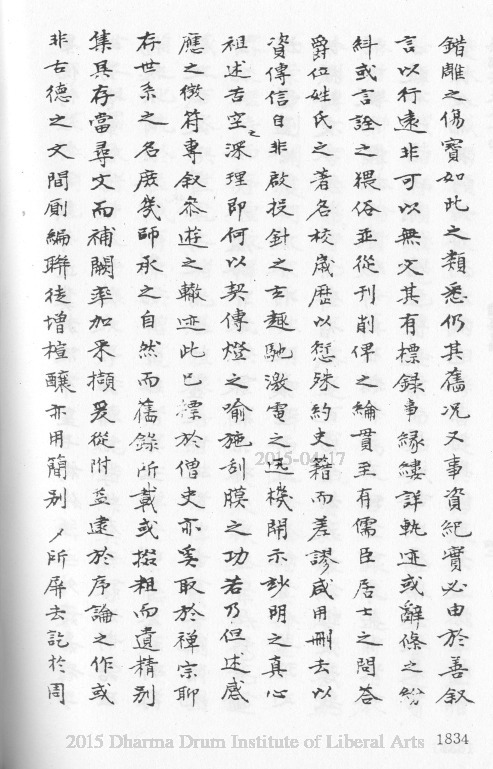 錯雕之傷寶如此之類悉仍其舊況又事資紀實必由於善叙
言以行遠非可以無文其有標錄事緣縷詳軌迹或辭條之紛
糾或言詮之猥俗並從刊削俾之綸貫至有儒臣居士之問答
爵位姓氏之著名校歲歷以愆殊約史籍而差謬咸用刪去以
資傳信自非啟投針之玄趣馳激電之迅機開示妙明之真心
祖述苦空之深理即何以契傳燈之喻施刮膜之功若乃但述感
應之徵符專叙叅遊之轍迹此已標於僧史亦奚取於禪宗聊
存世系之名庶幾師承之自然而舊錄所載或掇粗而遺精別
集具存當尋文而補闕率加采擷爰從附益逮於序論之作或
非古德之文間厠編聯徒增楦釀亦用簡別多所屏去訖於周
2015-04-17
2015 Dharma Drum Institute of Liberal Arts
1834